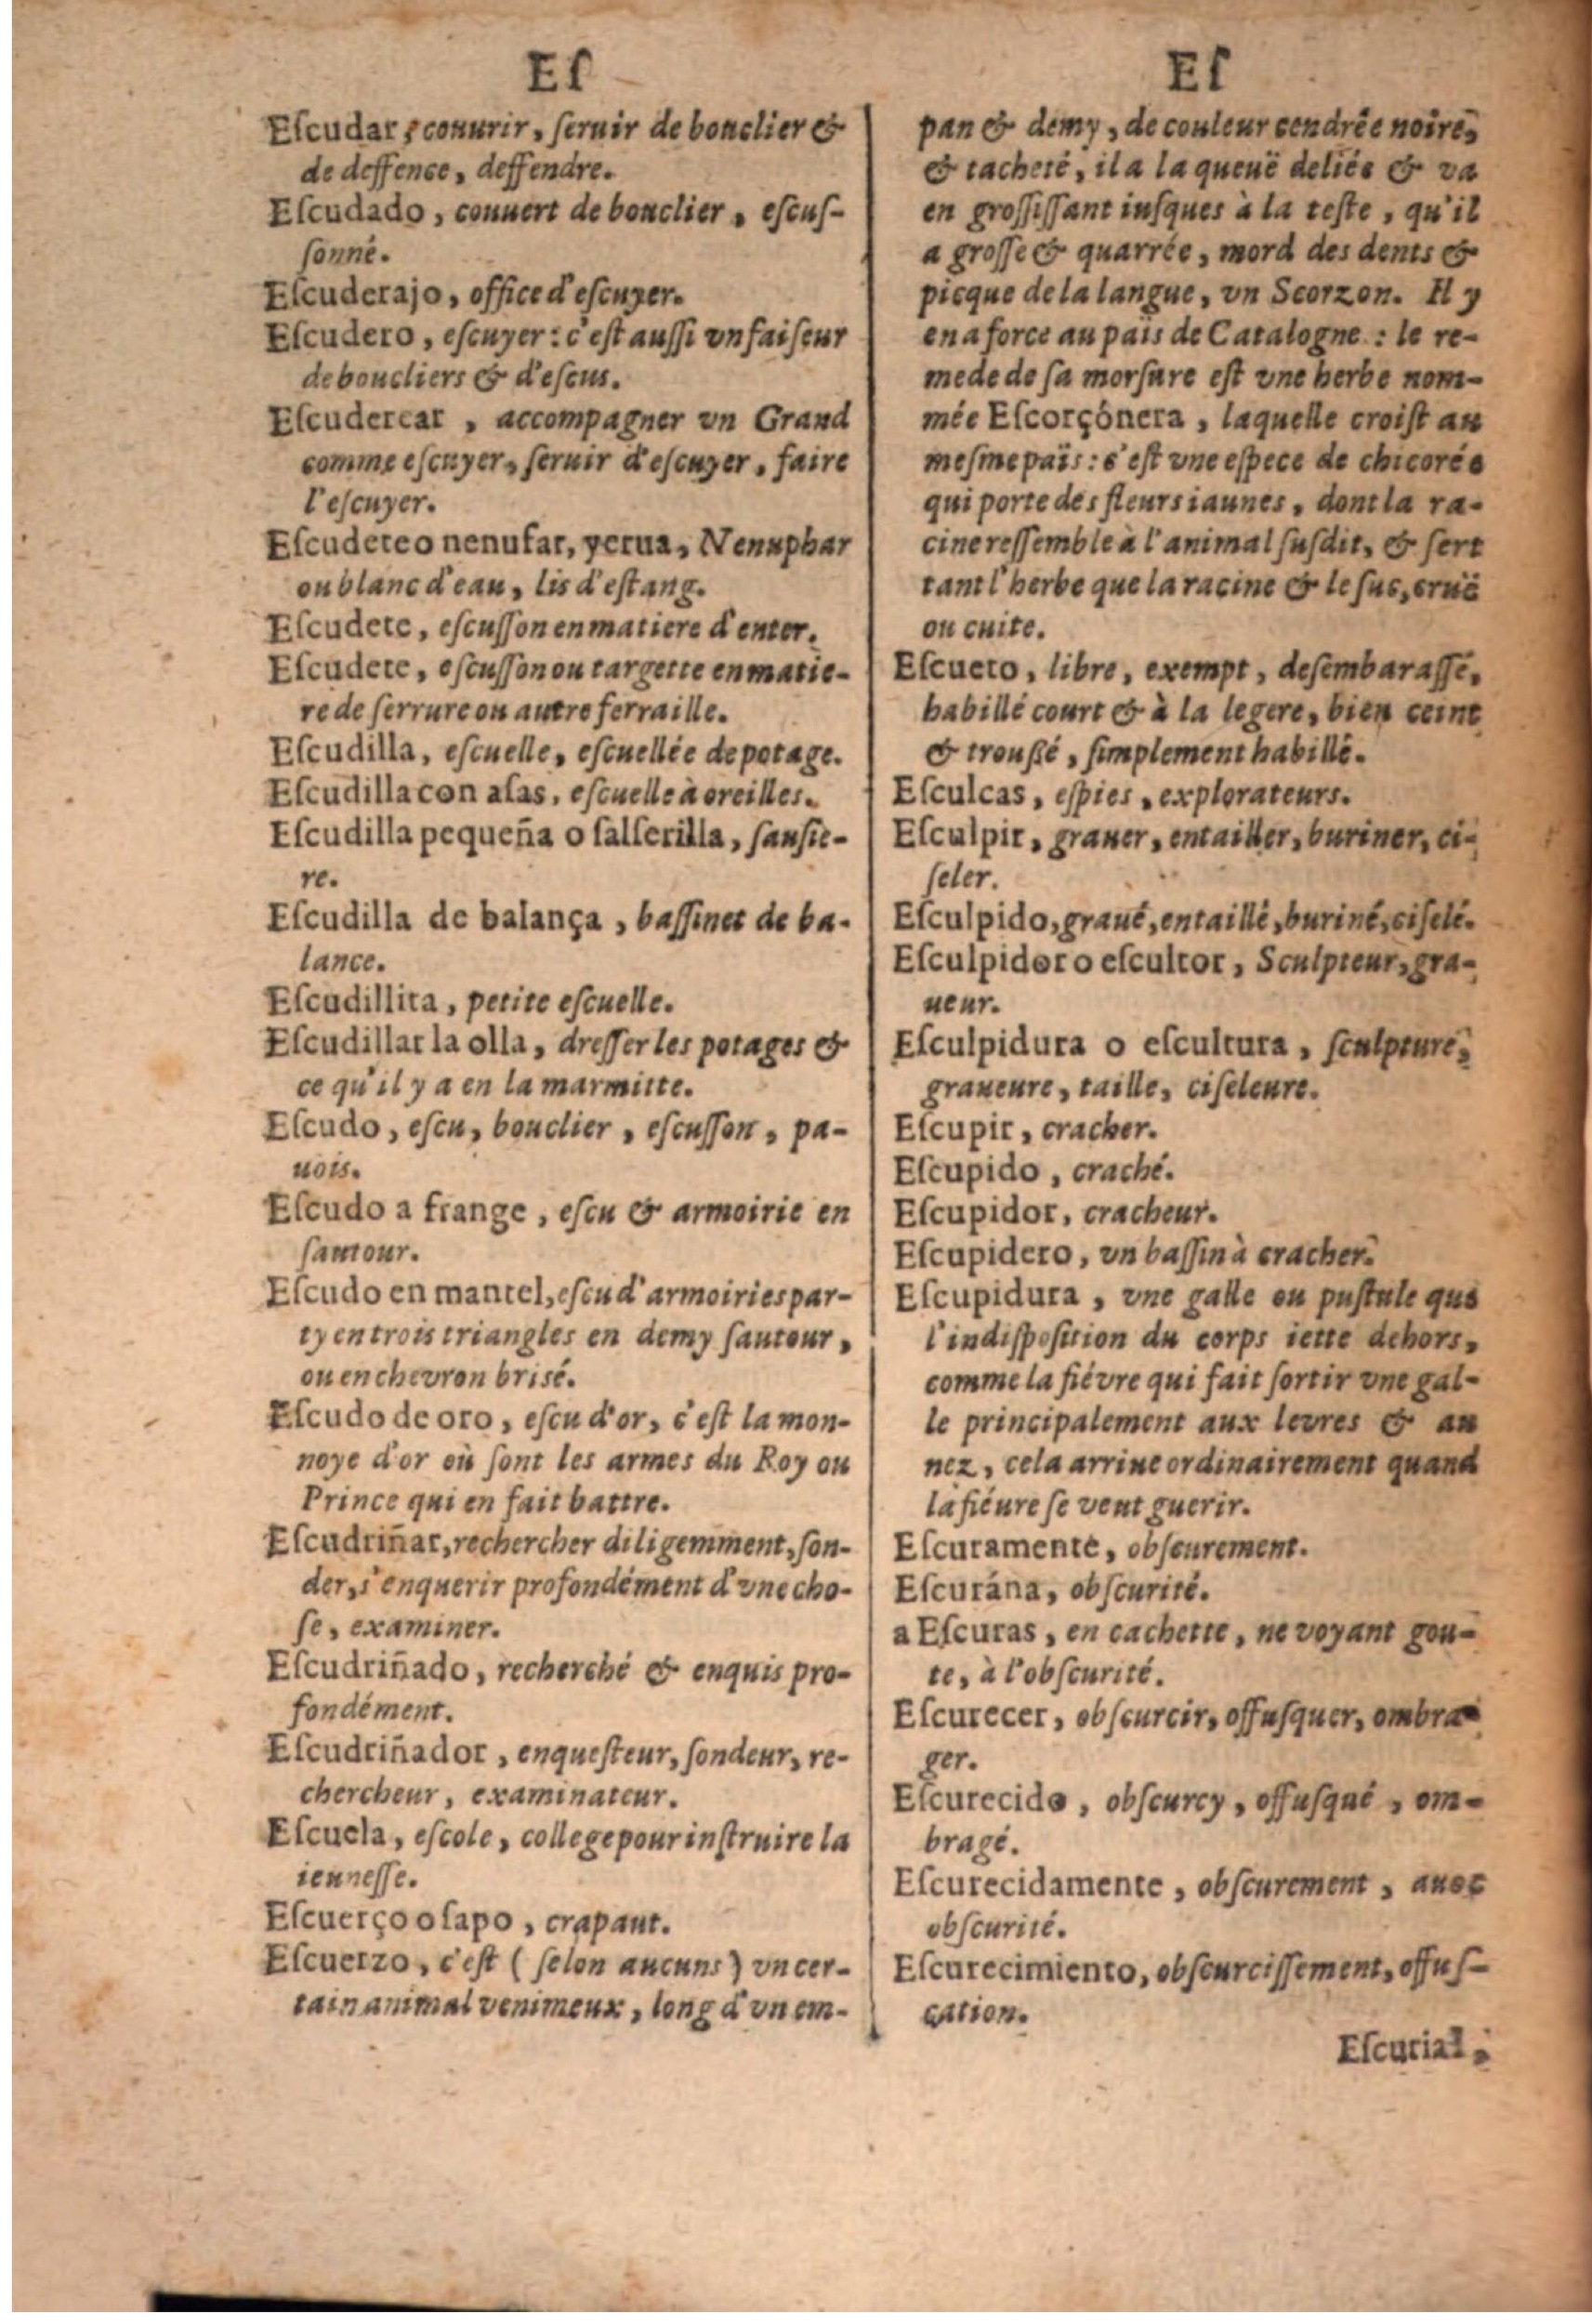 Eſ
Eſcudar, couurir, ſeruir de bouclier &
de deffence, deffendre.
Eſcudado, couuert de bouclier, eſcuſ-
ſonné.
Eſcuderajo, office d'eſcuyer.
Eſcudero, eſcuyer: c'eſt auſſi vn faiſeur
de boucliers & d'eſcus.
Eſcuderear, accompagner vn Grand
comme eſcuyer, ſeruir d'eſcuyer, faire
l'eſcuyer.
Eſcudete o nenufar, yerua, Nenuphar
ou blanc d'eau, lis d'eſtang.
Eſcudete, eſcuſſon en matiere d'enter.
Eſcudete, eſcuſſon ou targette en matie-
re de ſerrure ou autre ferraille.
Eſcudilla, eſcuelle, eſcuellée de potage.
Eſcudilla con aſas, eſcuelle à oreilles.
Eſcudilla pequeña o ſalſerilla, ſauſie-
re.
Eſcudilla de balança, baſſinet de ba-
lance.
Eſcudillita, petite eſcuelle.
Eſcudillar la olla, dreſſer les potages &
ce qu'il y a en la marmitte.
Eſcudo, eſcu, bouclier, eſcuſſon, pa-
uois.
Eſcudo a frange, eſcu & armoirie en
ſautour.
Eſcudo en mantel, eſcu d'armoiries par-
ty en trois triangles en demy ſautour,
ou en chevron brisé.
Eſcudo de oro, eſcu d'or, c'eſt la mon-
noye d'or où ſont les armes du Roy ou
Prince qui en fait battre.
Eſcudriñar, rechercher diligemment, ſon-
der, s'enquerir profondément d'vne cho-
ſe, examiner.
Eſcudriñado, recherché & enquis pro-
fondément.
Eſcudriñador, enqueſteur, ſondeur, re-
chercheur, examinateur.
Eſcuela, eſcole, college pour inſtruire la
ieunesſe.
Eſcuerço o ſapo, crapaut.
Eſcuerzo, c'eſt (ſelon aucuns) vn cer-
tain animal venimeux, long d'vn em-
Eſ
pan & demy, de couleur cendrée noire,
& tacheté, il a la queuë deliée & va
en groſſiſſant iuſques à la teſte, qu'il
a groſſe & quarrée, mord des dents &
picque de la langue, vn Scorzon. Il y
en a force au païs de Catalogne: le re-
mede de ſa morſure eſt vne herbe nom-
mée Eſcorçónera, laquelle croiſt au
meſme païs: c'eſt vne eſpece de chicorée
qui porte des fleurs iaunes, dont la ra-
cine reſſemble à l'animal ſuſdit, & ſert
tant l'herbe que la racine & le ſuc, cruë
ou cuite.
Eſcueto, libre, exempt, deſembaraſſé,
habillé court & à la legere, bien ceint
& troußé, ſimplement habillé.
Eſculcas, eſpies, explorateurs.
Eſculpir, grauer, entailler, buriner, ci-
ſeler.
Eſculpido, graué, entaillé, buriné, ciſelé.
Eſculpidor o eſcultor, Sculpteur, gra-
ueur.
Eſculpidura o eſcultura, ſculpture,
graueure, taille, ciſeleure.
Eſcupir, cracher.
Eſcupido, craché.
Eſcupidor, cracheur.
Eſcupidero, vn baſſin à cracher.
Eſcupidura, vne galle ou puſtule que
l'indiſpoſition du corps iette dehors,
comme la fiévre qui fait ſortir vne gal-
le principalement aux levres & au
nez, cela arriue ordinairement quand
la fiéure ſe veut guerir.
Eſcuramente, obſcurement.
Eſcurána, obſcurité.
a Eſcuras, en cachette, ne voyant gou-
te, à l'obſcurité.
Eſcurecer, obſcurcir, offuſquer, ombra-
ger.
Eſcurecido, obſcurcy, offuſqué, om-
bragé.
Eſcurecidamente, obſcurement, auec
obſcurité.
Eſcurecimiento, obſcurciſſement, offuſ-
cation.
Eſcurial,